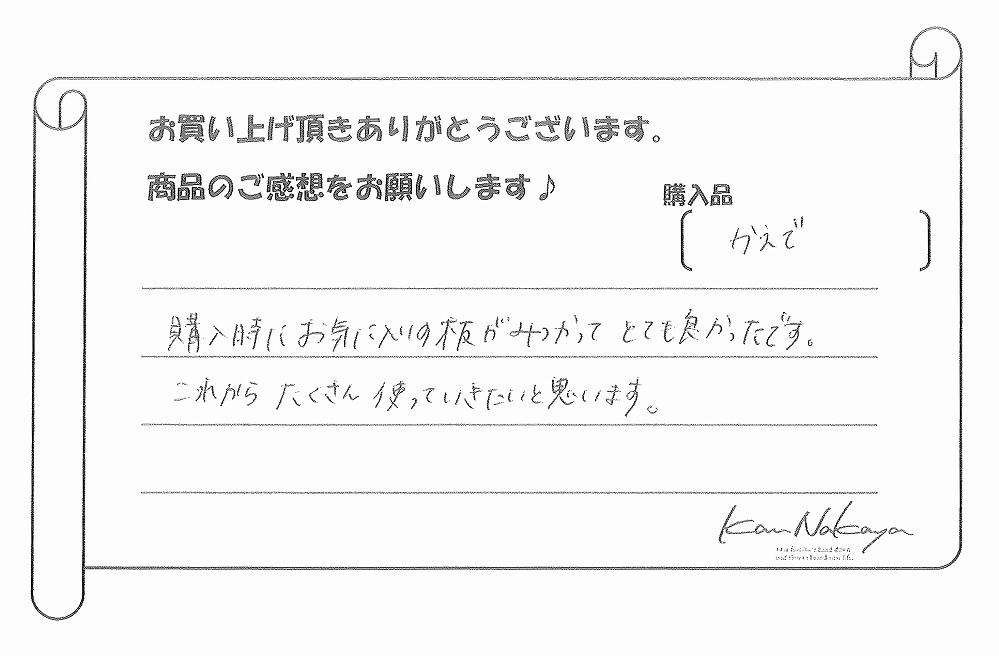 お買い上げ頂きありがとうございます。
商品のご感想をお願いします♪
購入品
かえで
購入時にお気に入りの板がみつかって とても良かったです。
これから たくさん 使っていきたいと思います。
Kan Nakaya